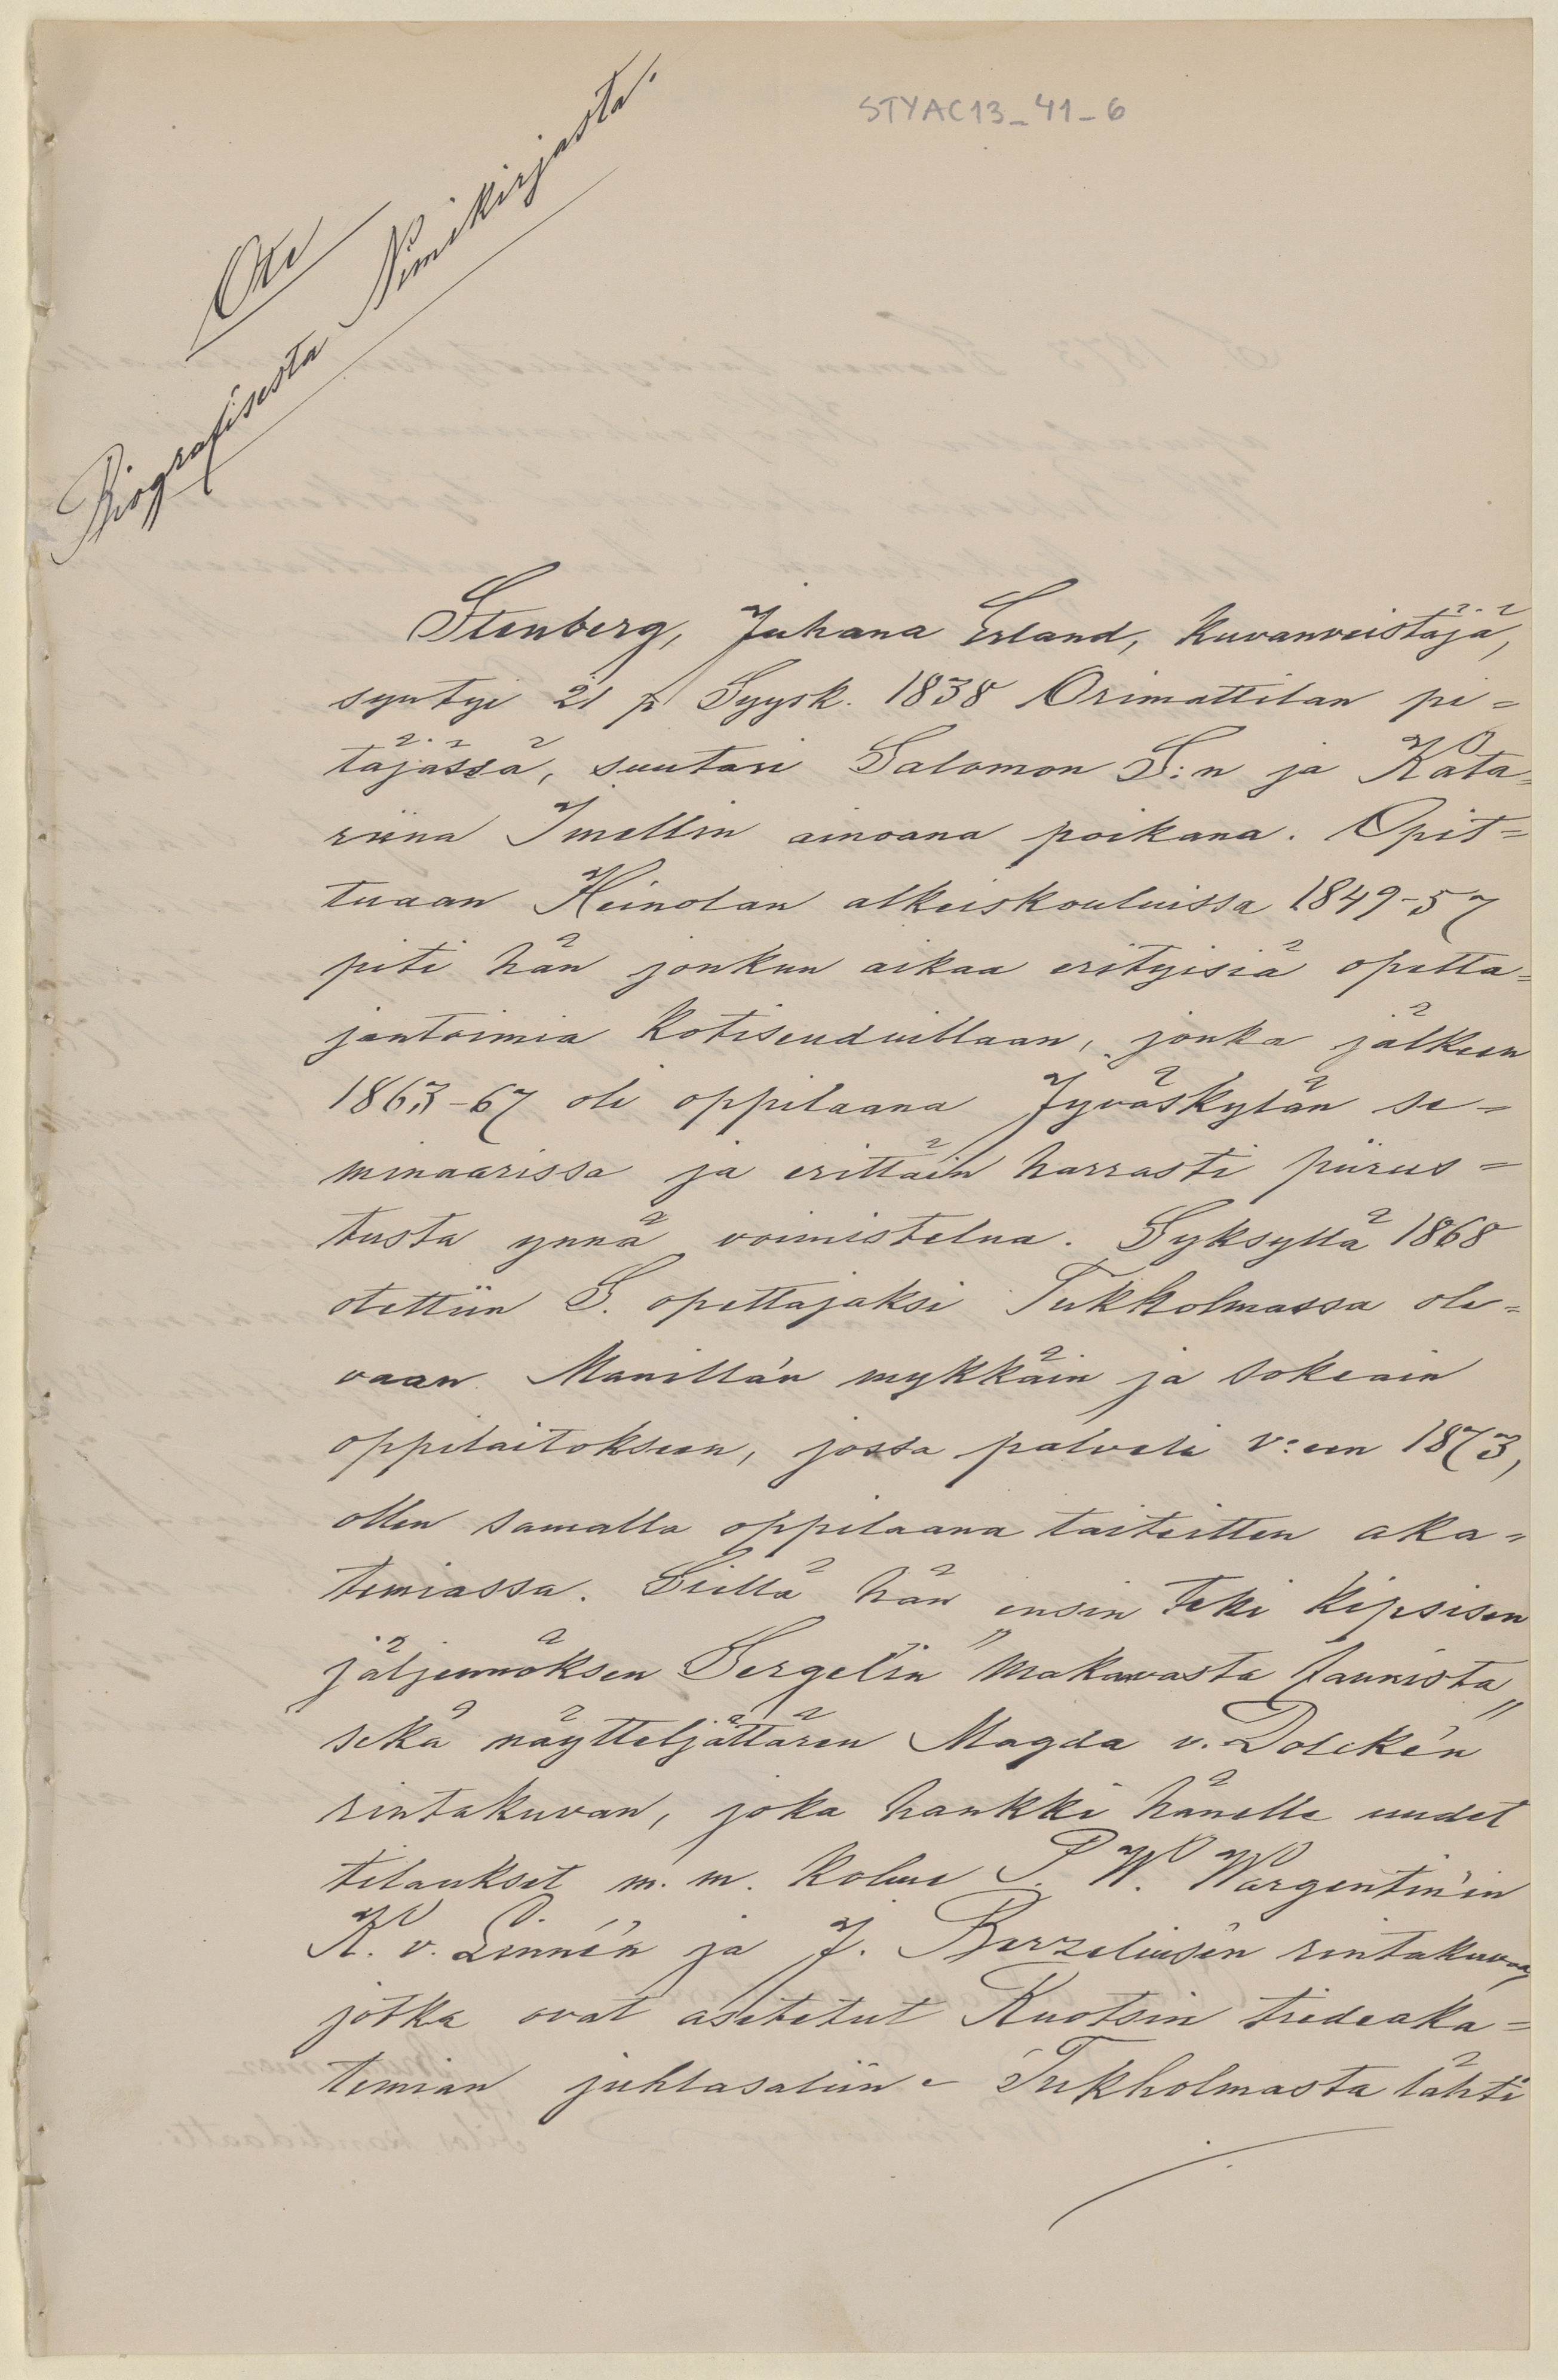 STYAC13_41_6
Ote
Biografisesta Nimikirjasta.
Stenberg, Juhana Erland, kuvanveistäjä,
syntyi 21 p Syysk. 1838 Orimattilan pi=
täjässä, suutari Salomon S:n ja Kata=
riina Imellin ainoana poikana. Opit=
tuaan Heinolan alkeiskouluissa 1849-57
piti hän jonkun aikaa erityisiä opetta=
jantoimia kotiseuduillaan, jonka jälkeen
1863-67 oli oppilaana Jyväskylän se=
minaarissa ja erittäin harrasti piirus=
tusta ynnä voimistelua. Syksyllä 1868
otettiin S. opettajaksi Tukholmassa ole=
vaan Manilla'n mykkäin ja sokeain
oppilaitokseen, jossa palveli v:een 1873,
ollen samalla oppilaana taiteitten aka=
temiassa. Siellä hän ensin teki kipsisen
jäljennöksen Sergel'in "makaavasta faunista"
sekä näytteljättären Magda v. Dolcke'n
rintakuvan, joka hankki hänelle uudet
tilaukset m. m. kolme P. W. Wargentin'in
K. v. Linné'n ja J. Berzelius'en rintakuvaa,
jotka ovat asetetut Ruotsin tiedeaka=
temian juhlasaliin - Tukholmasta lähti